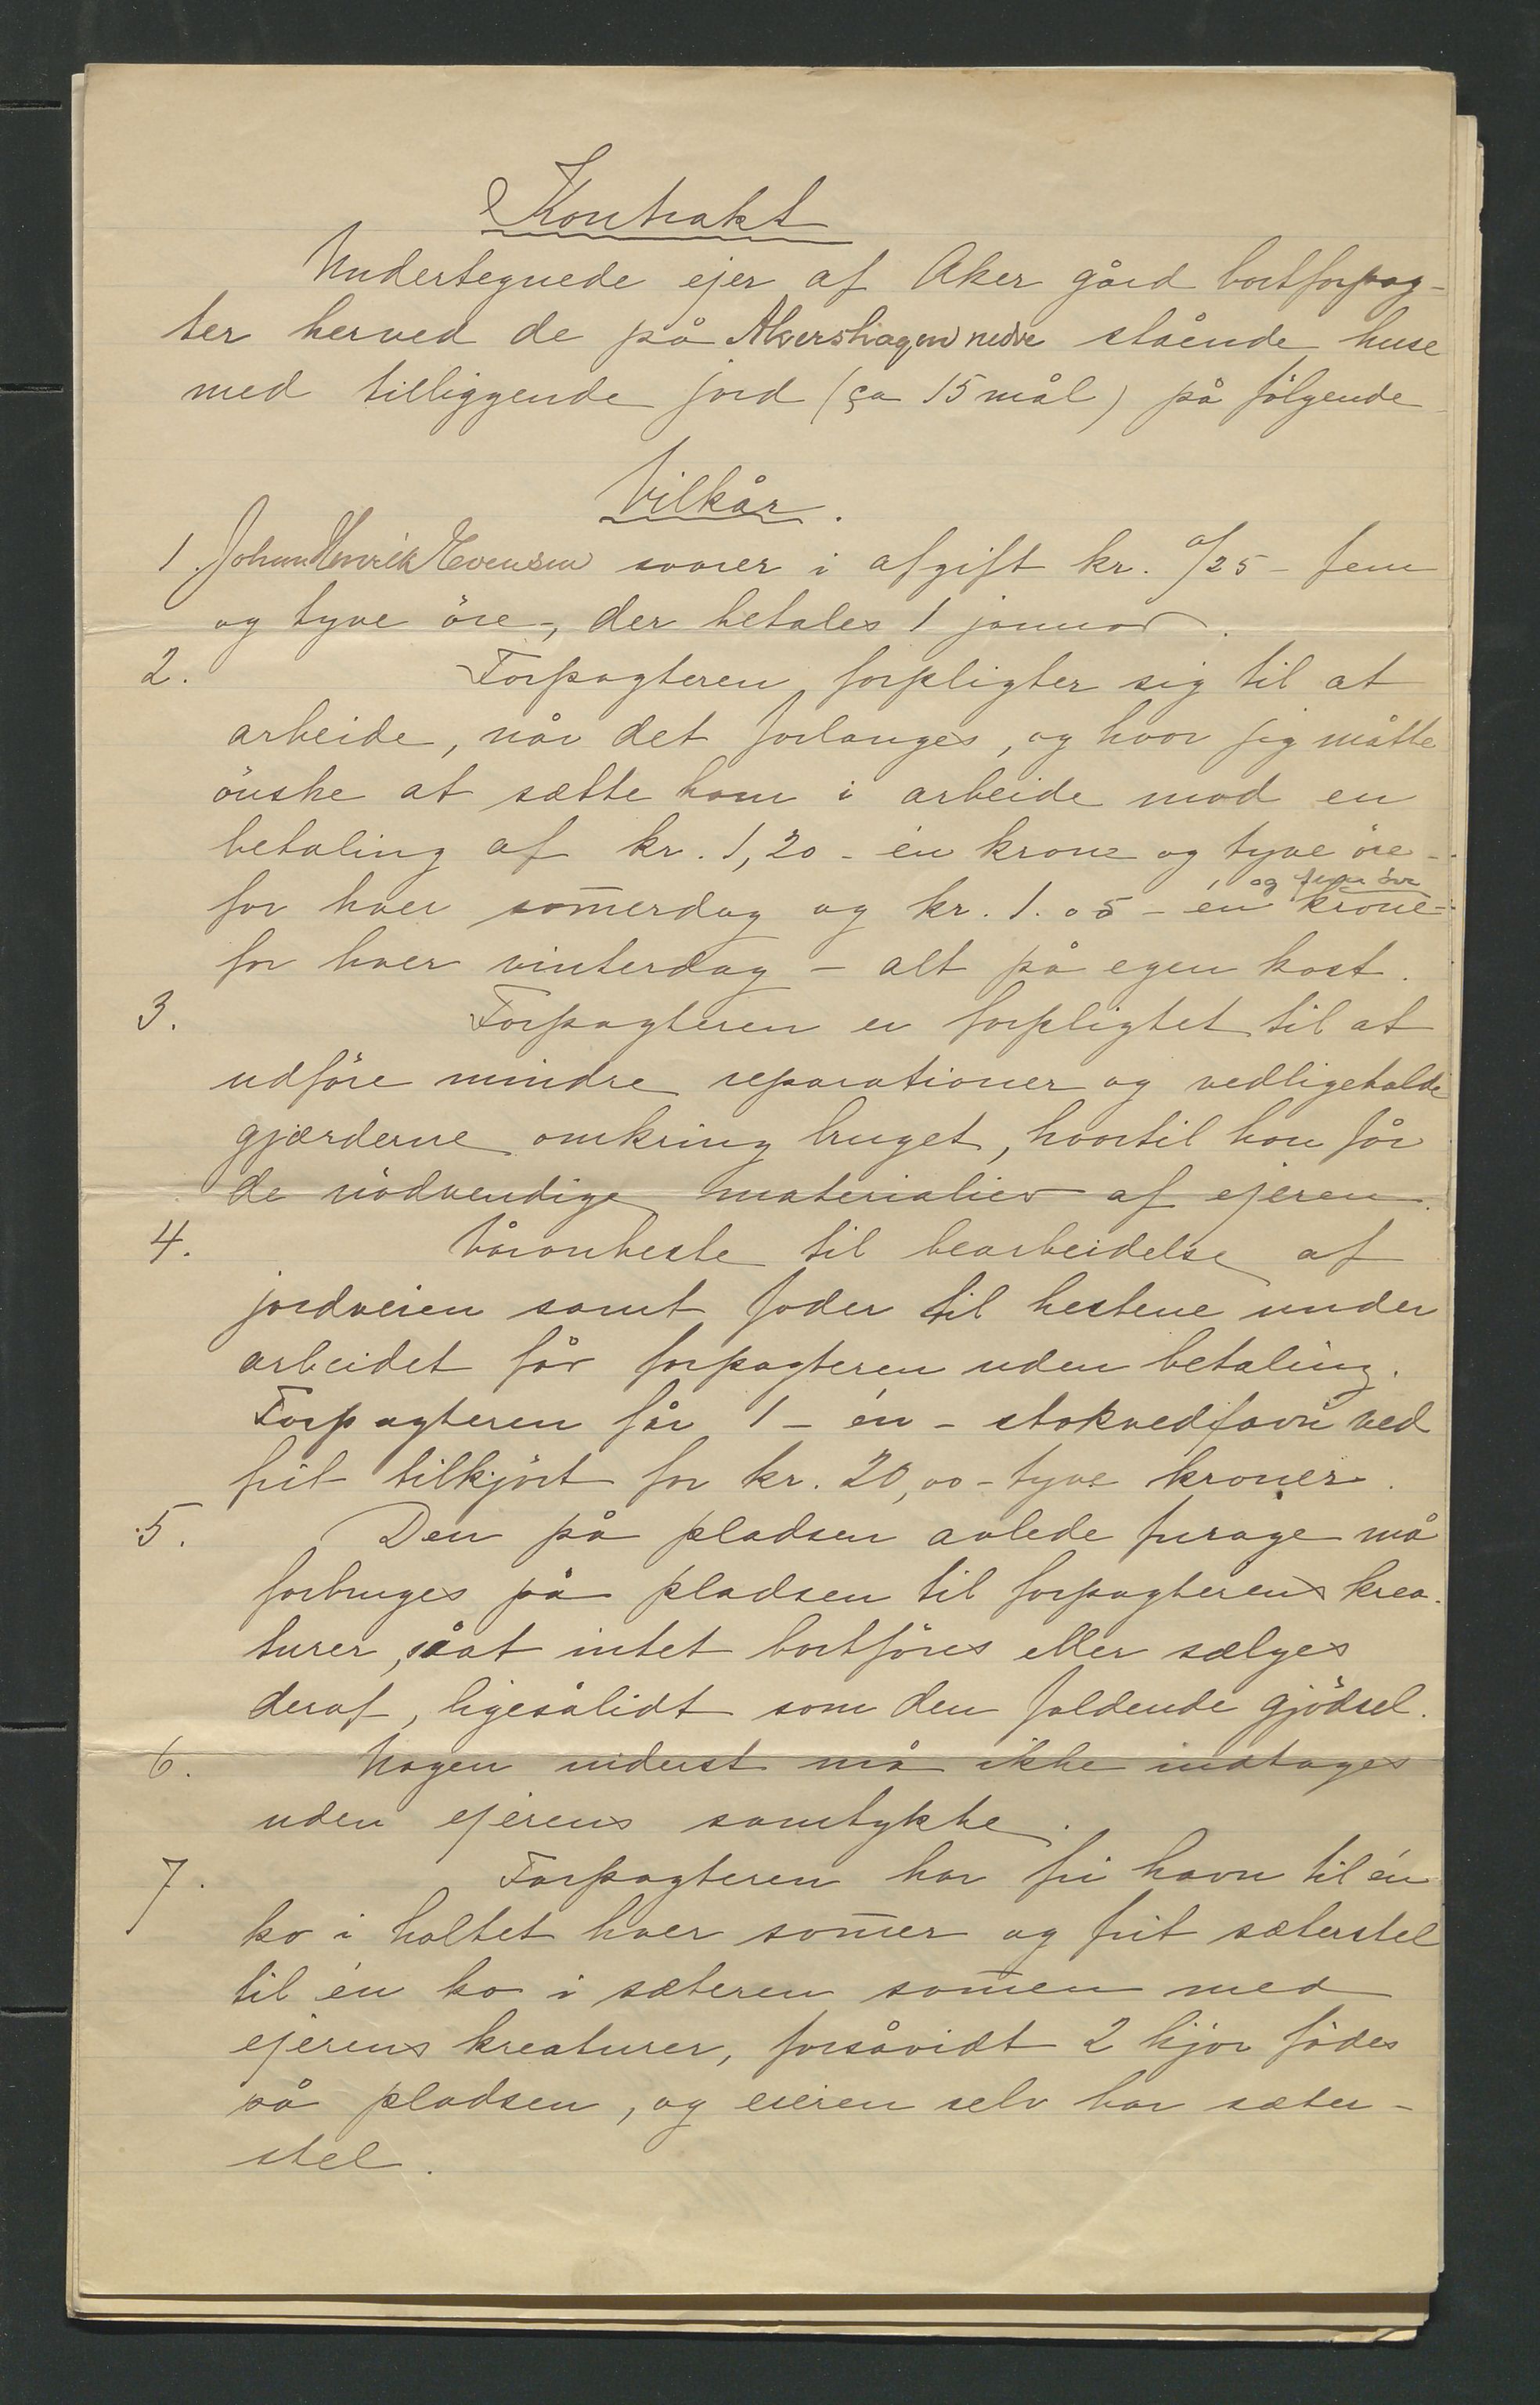 Kontrakt
Undertegnede ejer af Aker gård bortforpag-
ter herved de på Akershagen nedre stående huse
med tilliggende jord (ca 15 mål) på følgende
Vilkår.
1. Johan Henrik Evensen svarer i afgift kr. 0/25 - fem
og tyve öre -, der betales 1 januar.
2. Forpagteren forpligter sig til at
arbeide, når det forlanges, og hvor jeg måtte
önske at sætte ham i arbeide mod en
betaling af kr. 1,20 - én krone og tyve öre -
og fem öre
for hver som̄erdag og kr. 1.05 - én krone -
for hver vinterdag - alt på egen kost.
3. Forpagteren er forpligtet til at
udföre mindre reparationer og vedligeholde
gjærderne omkring bruget, hvortil han får
de nödvendige materialier af ejeren.
4. Våronheste til bearbeidelse af
jordveien samt foder til hestene under
arbeidet får forpagteren uden betaling.
Forpagteren får 1 - én - stokvedfavn ved
frit tilkjört for kr. 20,00 - tyve kroner.
5. Den på pladsen avlede furage må
forbruges på pladsen til forpagterens krea-
turer, såat intet bortföres eller sælges
deraf, ligesålidt som den faldende gjödsel.
6. Nogen inderst må ikke indtages
uden ejerens samtykke.
7. Forpagteren har fri havn til én
ko i holtet hver som̄er og frit sæterstel
til én ko i sæteren sam̄en med
ejerens kreaturer, forsåvidt 2 kjör födes
på pladsen, og eieren selv har sæter-
stel.